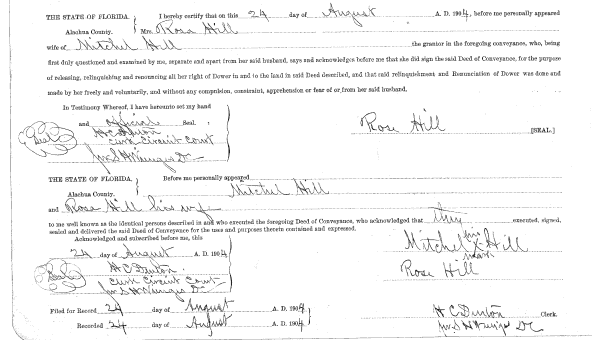 THE STATE OF FLORIDA. I hereby certify that on this 24 day of August A. D. 1904, before me personally appeared
Alachua County. Mrs. Rosa Hill
wife of Mitchel Hill the grantor in the foregoing conveyance, who, being
first duly questioned and examined by me, separate and apart from her said husband, says and acknowledges before me that she did sign the said Deed of Conveyance, for the purpose
of releasing, relinquishing and renouncing all her right of Dower in and to the land in said Deed described, and that said relinquishment and Renunciation of Dower was done and
made by her freely and voluntarily, and without any compulsion, constraint, apprehension or fear of or from her said husband.
In Testimony Whereof, I have hereunto set my hand
and official Seal.
Seal H C Denton
Clerk Circuit Court
Rosa Hill [SEAL.]
THE STATE OF FLORIDA. Before me personally appeared
Alachua County. Mitchel Hill
and Rosa Hill his wife
to me well known as the identical persons described in and who executed the foregoing Deed of Conveyance, who acknowledged that they executed, signed,
sealed and delivered the said Deed of Conveyance for the uses and purposes therein contained and expressed.
Acknowledged and subscribed before me, this
24 day of August A. D. 1904
Seal H C Denton
Clerk Circuit Court
his
Mitchel X Hill
mark
Rosa Hill
Filed for Record 24 day of August A. D. 1904
Recorded 24 day of August A. D. 1904
H C Denton Clerk.